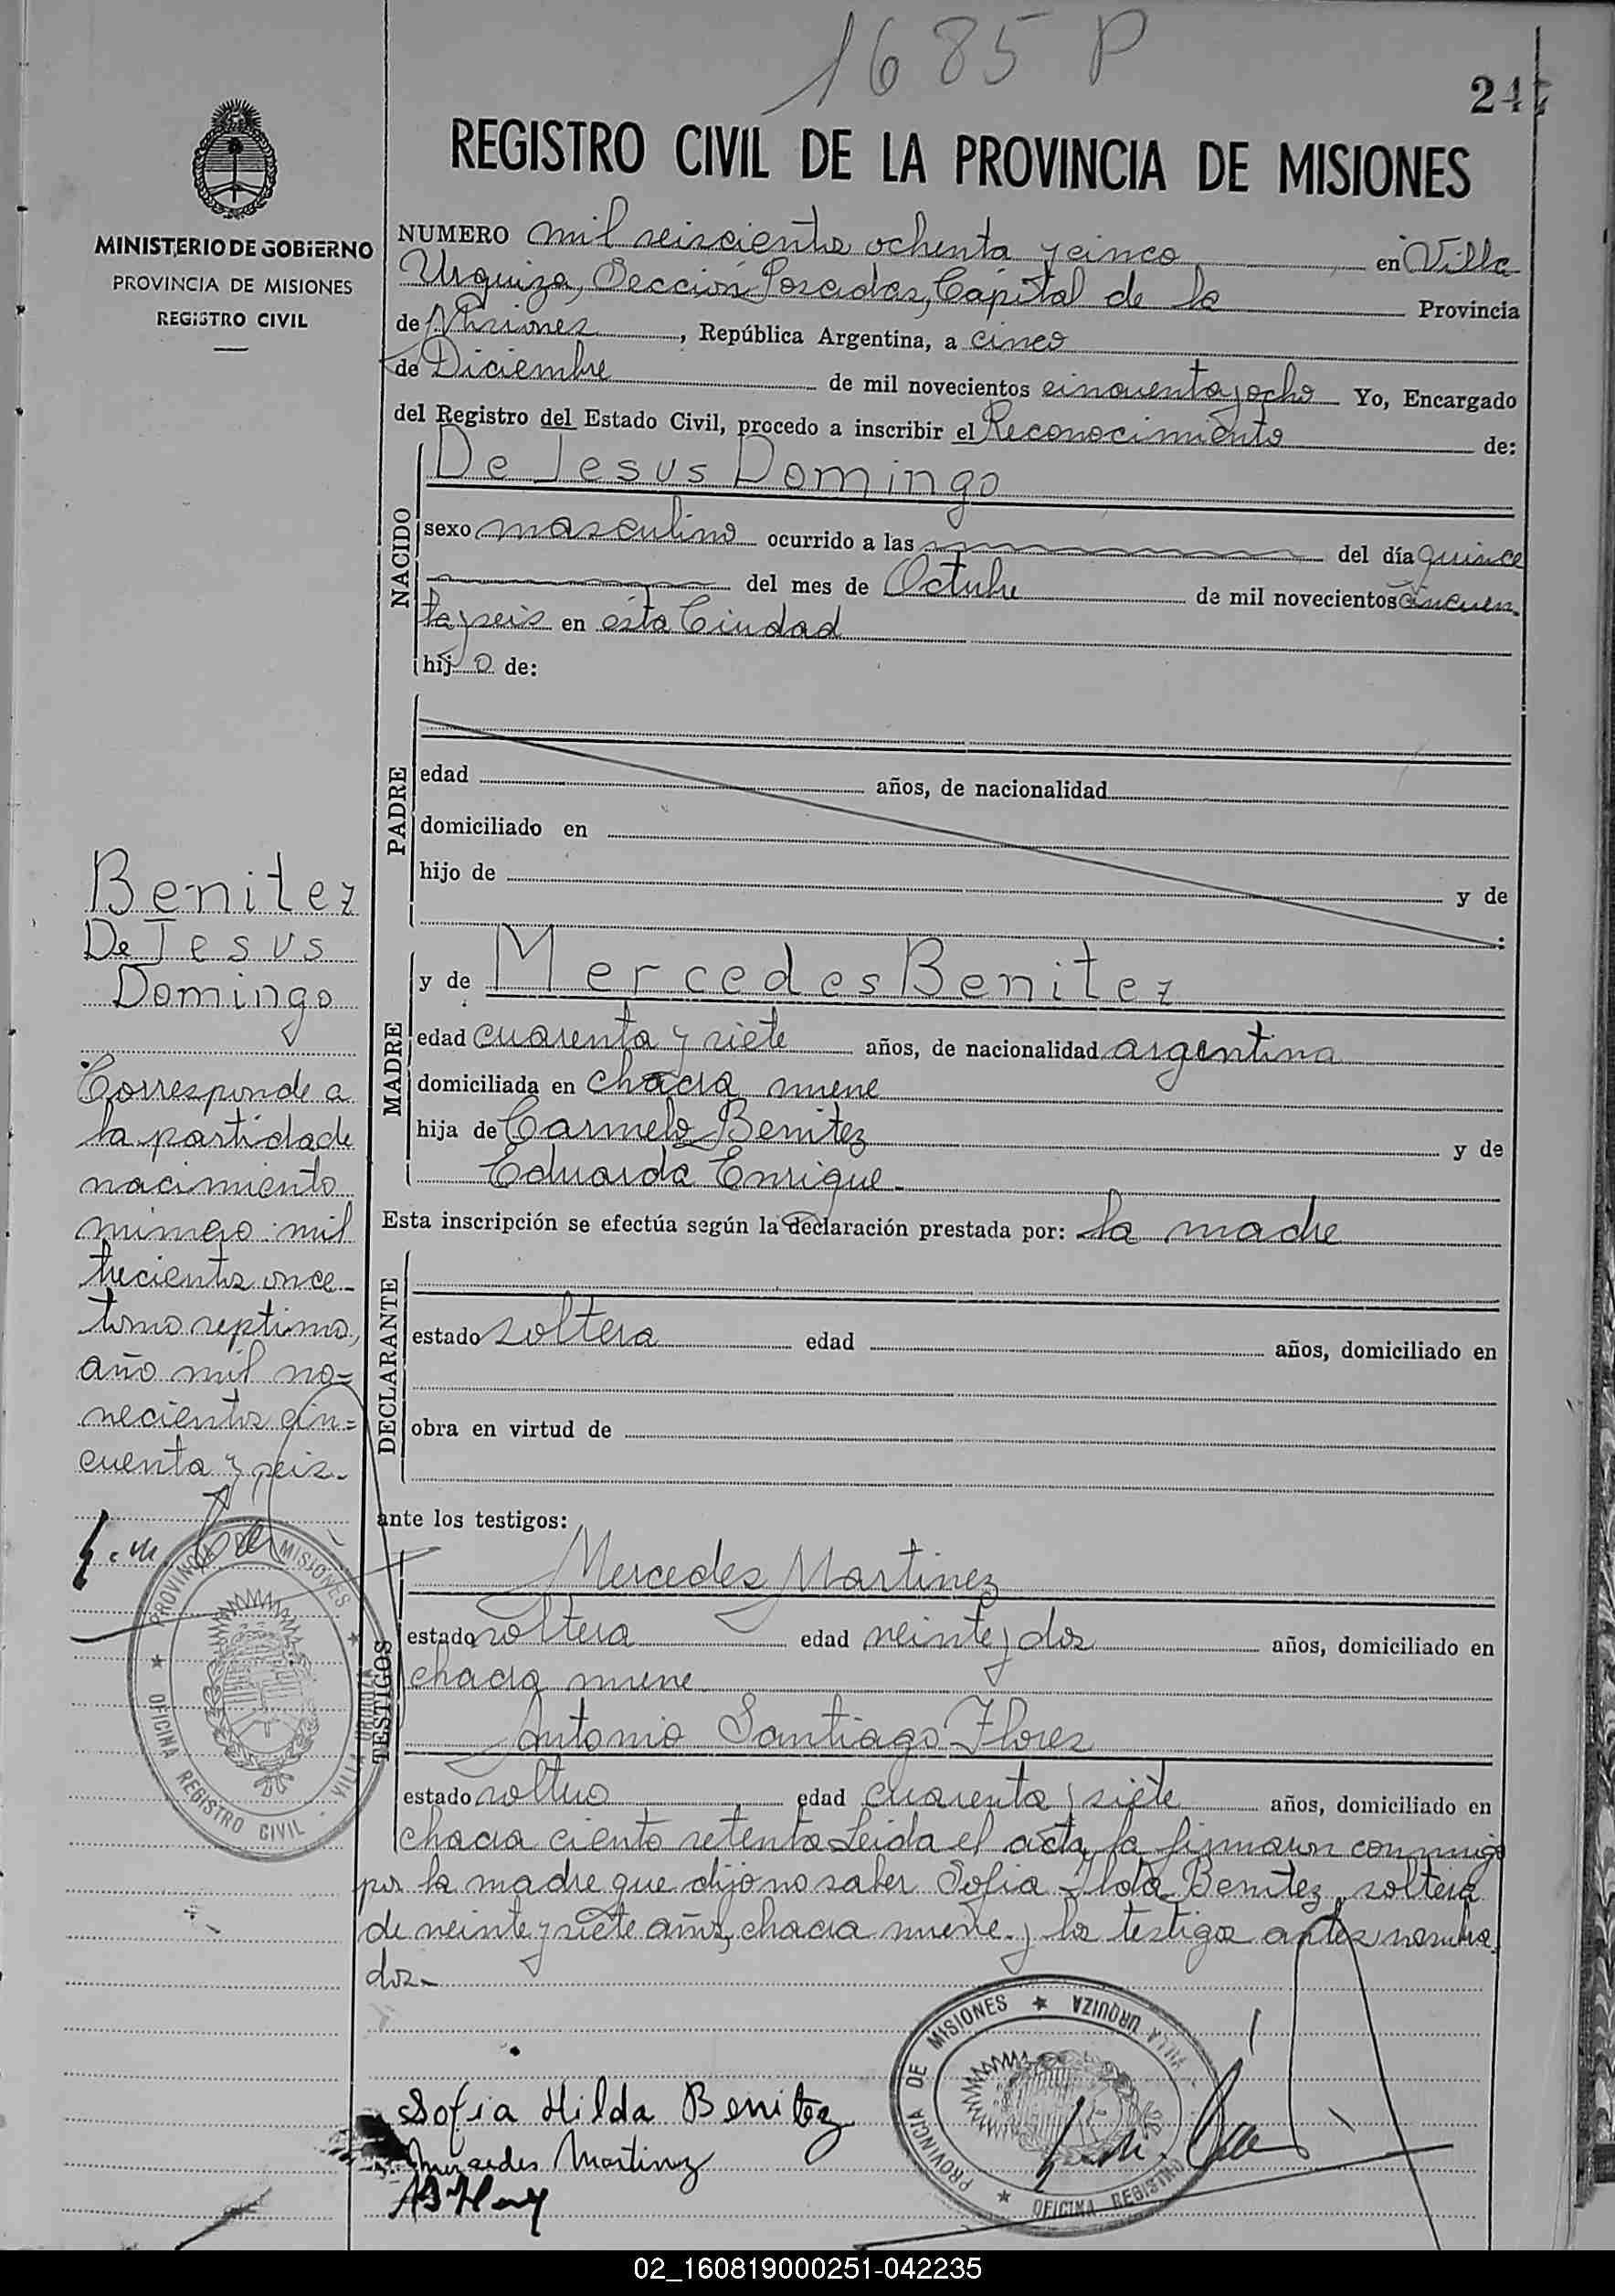 1685 P
24
REGISTRO CIVIL DE LA PROVINCIA DE MISIONES
MINISTERIO DE GOBIERNO
PROVINCIA DE MISIONES
REGISTRO CIVIL
NUMERO mil seiscientos ochenta y cinco en Villa
Urquiza, Sección Posadas, Capital de la Provincia
de Misiones, República Argentina, a cinco
de Diciembre de mil novecientos cincuenta y ocho Yo, Encargado
del Registro del Estado Civil, procedo a inscribir el Reconocimiento de:
NACIDO
De Jesus Domingo
sexo masculino ocurrido a las del día quince
del mes de Octubre de mil novecientos cincuen
ta y seis en esta Ciudad
hijo de:
PADRE
edad años, de nacionalidad
domiciliado en
hijo de y de
Benitez
De Jesus
Domingo
Corresponde a
la partida de
nacimiento
número mil
trecientos once
tomo septimo,
año mil no=
vecientos cin=
cuenta y seis.
MADRE
y de Mercedes Benitez
edad cuarenta y siete años, de nacionalidad argentina
domiciliada en chacra nueve
hija de Carmelo Benitez y de
Eduarda Enrique.
Esta inscripción se efectúa según la declaración prestada por: la madre
DECLARANTE
estado soltera edad años, domiciliado en
obra en virtud de
ante los testigos:
TESTIGOS
Mercedes Martinez
estado soltera edad veinte y dos años, domiciliado en
chacra nueve
Antonio Santiago Flores
estado soltero edad cuarenta y siete años, domiciliado en
chacra ciento setenta Leida el acta, la firmaron conmigo
por la madre que dijo no saber Sofia Ilda Benitez, soltera
de veinte y siete años, chacra nueve. y los testigos antes nombra
dos.
PROVINCIA DE MISIONES
OFICINA REGISTRO CIVIL - VILLA URQUIZA
Sofia Hilda Benitez
Mercedes Martinez
PROVINCIA DE MISIONES
VILLA URQUIZA
OFICINA REGISTRO
02_160819000251-042235